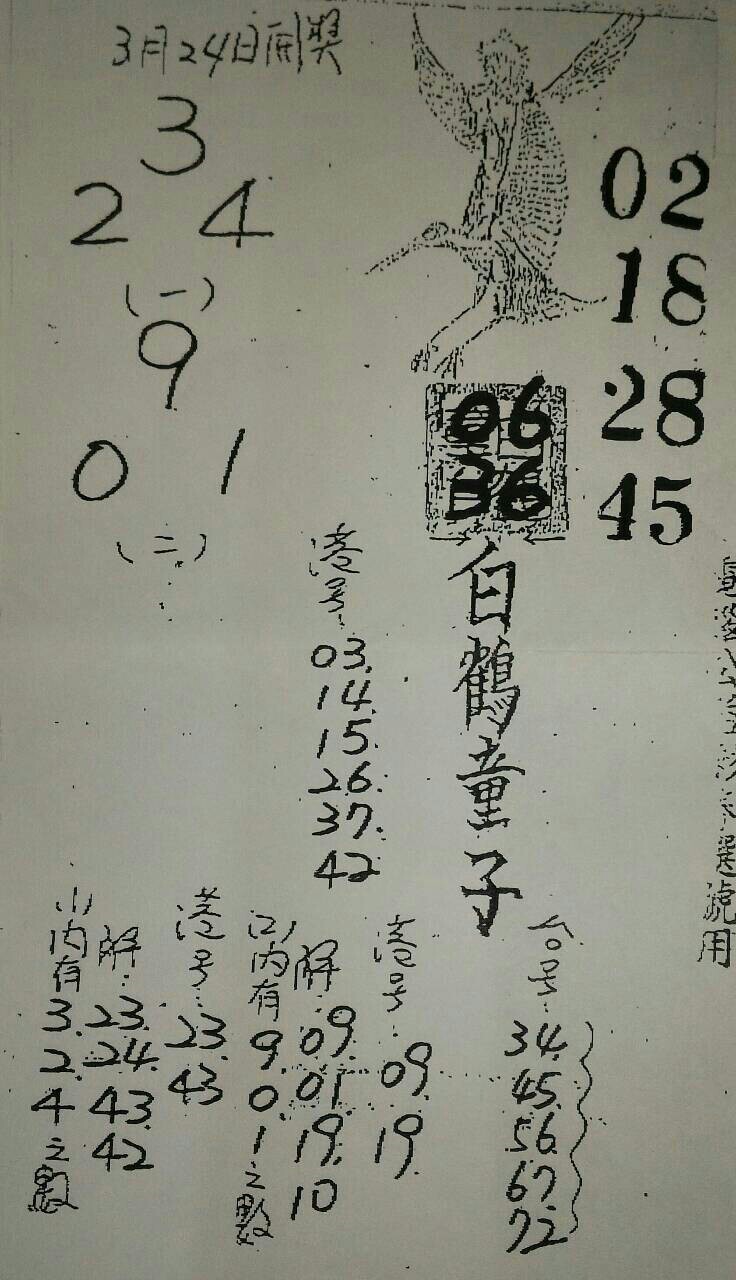 3月24日開獎
3
2 4
(一)
9
0 1
(二)
02
18
28
45
06
36
白鶴童子
港号:
03.
14.
15.
26.
37.
42
台号:
34.
45.
56.
67.
72
港号:
09.
19.
(2)內有9.0.1之數
解:
09.
01.
19.
10
港号:
23.
43
(1)內有3.2.4之數
解:
23.
24.
43.
42
選號用